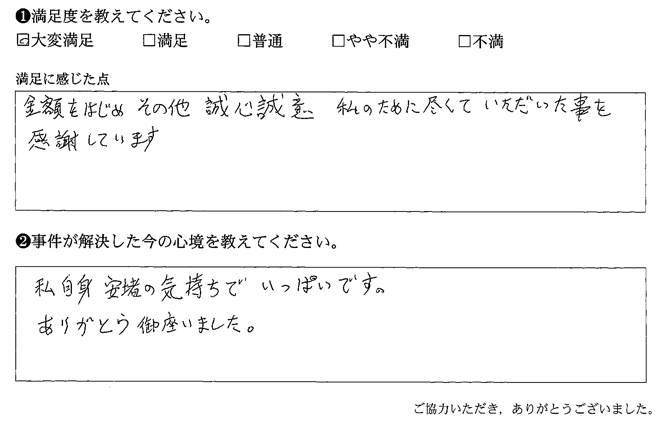 ❶満足度を教えてください。
☑大変満足 □満足 □普通 □やや不満 □不満
満足に感じた点
金額をはじめ その他 誠心誠意 私のために尽くて いただいた事を
感謝しています
❷事件が解決した今の心境を教えてください。
私自身 安堵の気持ちで いっぱいです。
ありがとう御座いました。
ご協力いただき，ありがとうございました。